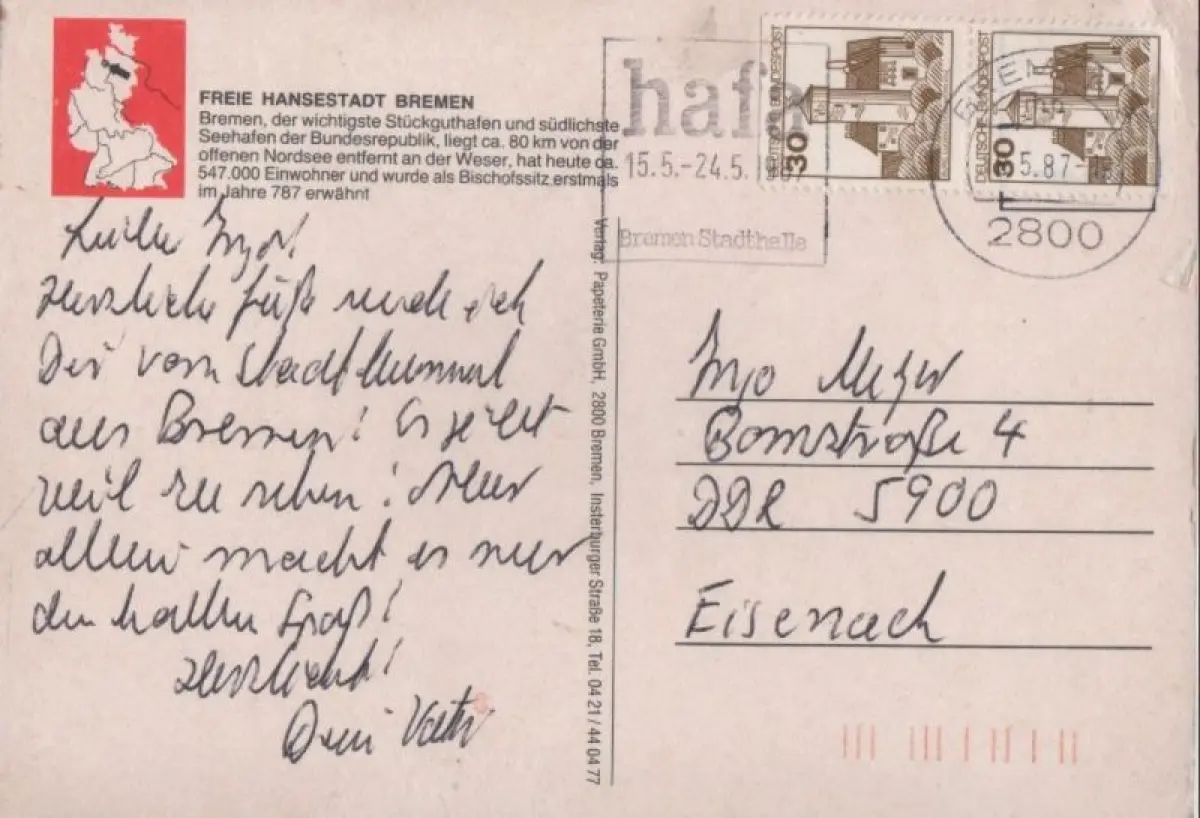 FREIE HANSESTADT BREMEN
Bremen, der wichtigste Stückguthafen und südlichste
Seehafen der Bundesrepublik, liegt ca. 80 km von der
offenen Nordsee entfernt an der Weser, hat heute ca.
547.000 Einwohner und wurde als Bischofssitz erstmals
im Jahre 787 erwähnt
Ingo!
Herzliche Grüße
Dir vom Stadtbummel
aus Bremen! Es gibt
viel zu sehen! Aber
allein macht es nur
den halben Spaß!
Herzlichst!
Dein Vater
Verlag: Papeterie GmbH, 2800 Bremen, Insterburger Straße 18, Tel. 04 21 / 44 04 77
hafa
15.5.-24.5.
Bremen Stadthalle
30 DEUTSCHE BUNDESPOST
30 DEUTSCHE BUNDESPOST
5.87-
2800
Ingo Meyer
Bornstraße 4
DDR 5900
Eisenach